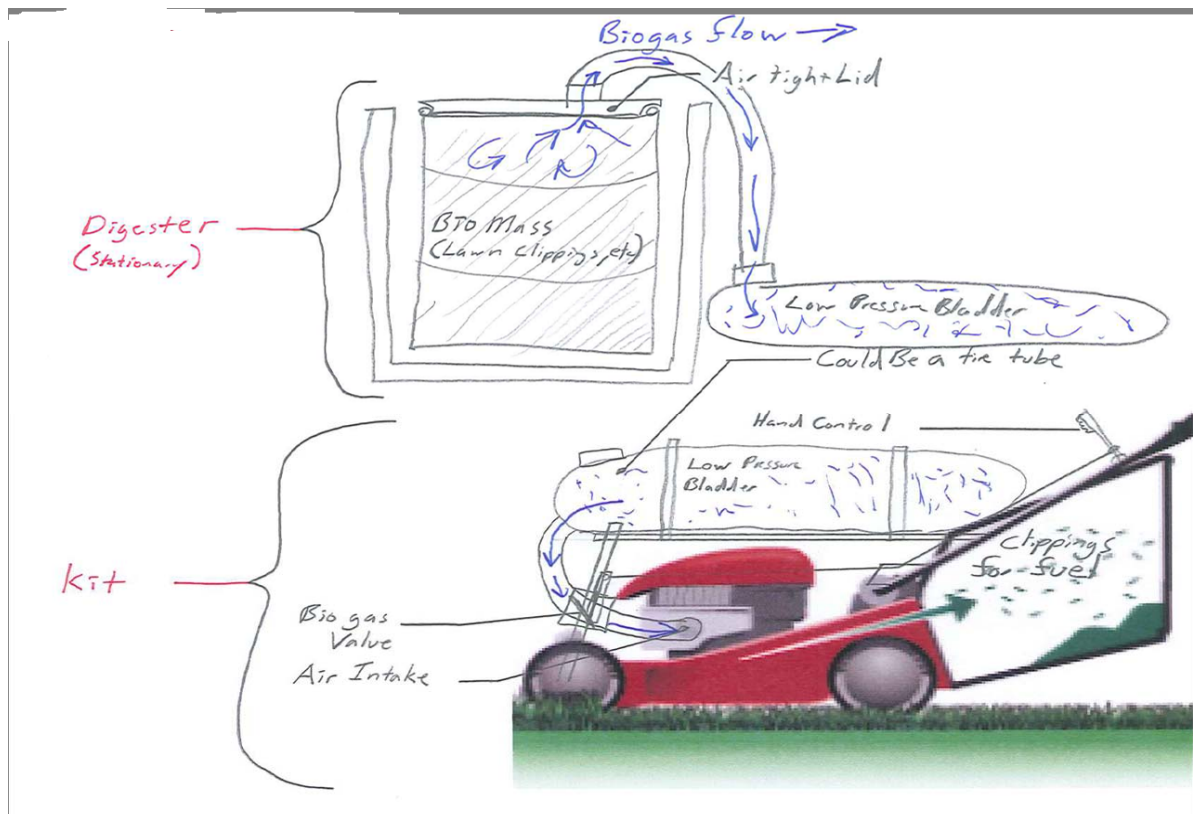 Biogas flow
Air tight Lid
Digester
(Stationary)
Bio Mass
(Lawn Clippings, etc)
Low Pressure Bladder
Could Be a tire tube
Hand Control
Low Pressure
Bladder
Clippings
for fuel
Kit
Bio gas
Valve
Air Intake